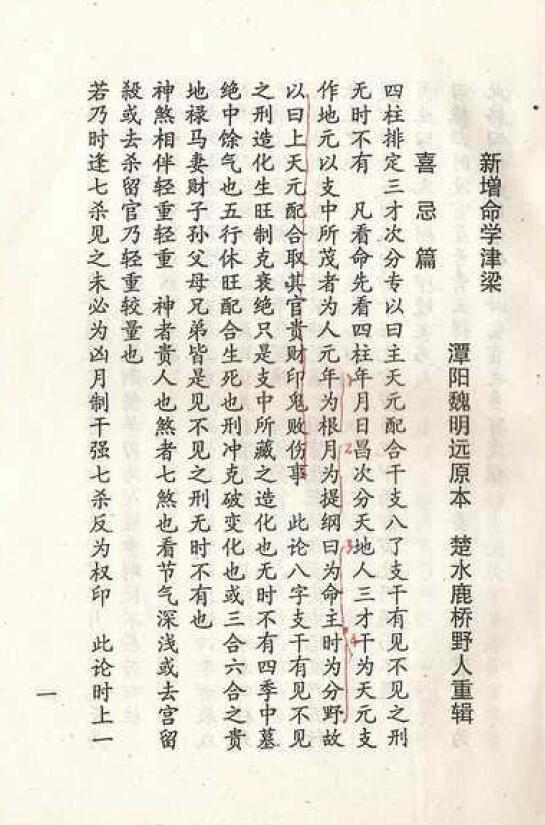 新增命学津梁
潭阳魏明远原本　楚水鹿桥野人重辑
喜忌篇
四柱排定三才次分专以曰主天元配合干支八了支干有见不见之刑
无时不有　凡看命先看四柱年月日昌次分天地人三才干为天元支
作地元以支中所茂者为人元年为根月为提纲曰为命主时为分野故
以曰上天元配合取其官贵财印鬼败伤事　此论八字支干有见不见
之刑造化生旺制克衰绝只是支中所藏之造化也无时不有四季中墓
绝中馀气也五行休旺配合生死也刑冲克破变化也或三合六合之贵
地禄马妻财子孙父母兄弟皆是见不见之刑无时不有也
神煞相伴轻重轻重　神者贵人也煞者七煞也看节气深浅或去宫留
殺或去杀留官乃轻重较量也
若乃时逢七杀见之未必为凶月制干强七杀反为权印　此论时上一
一